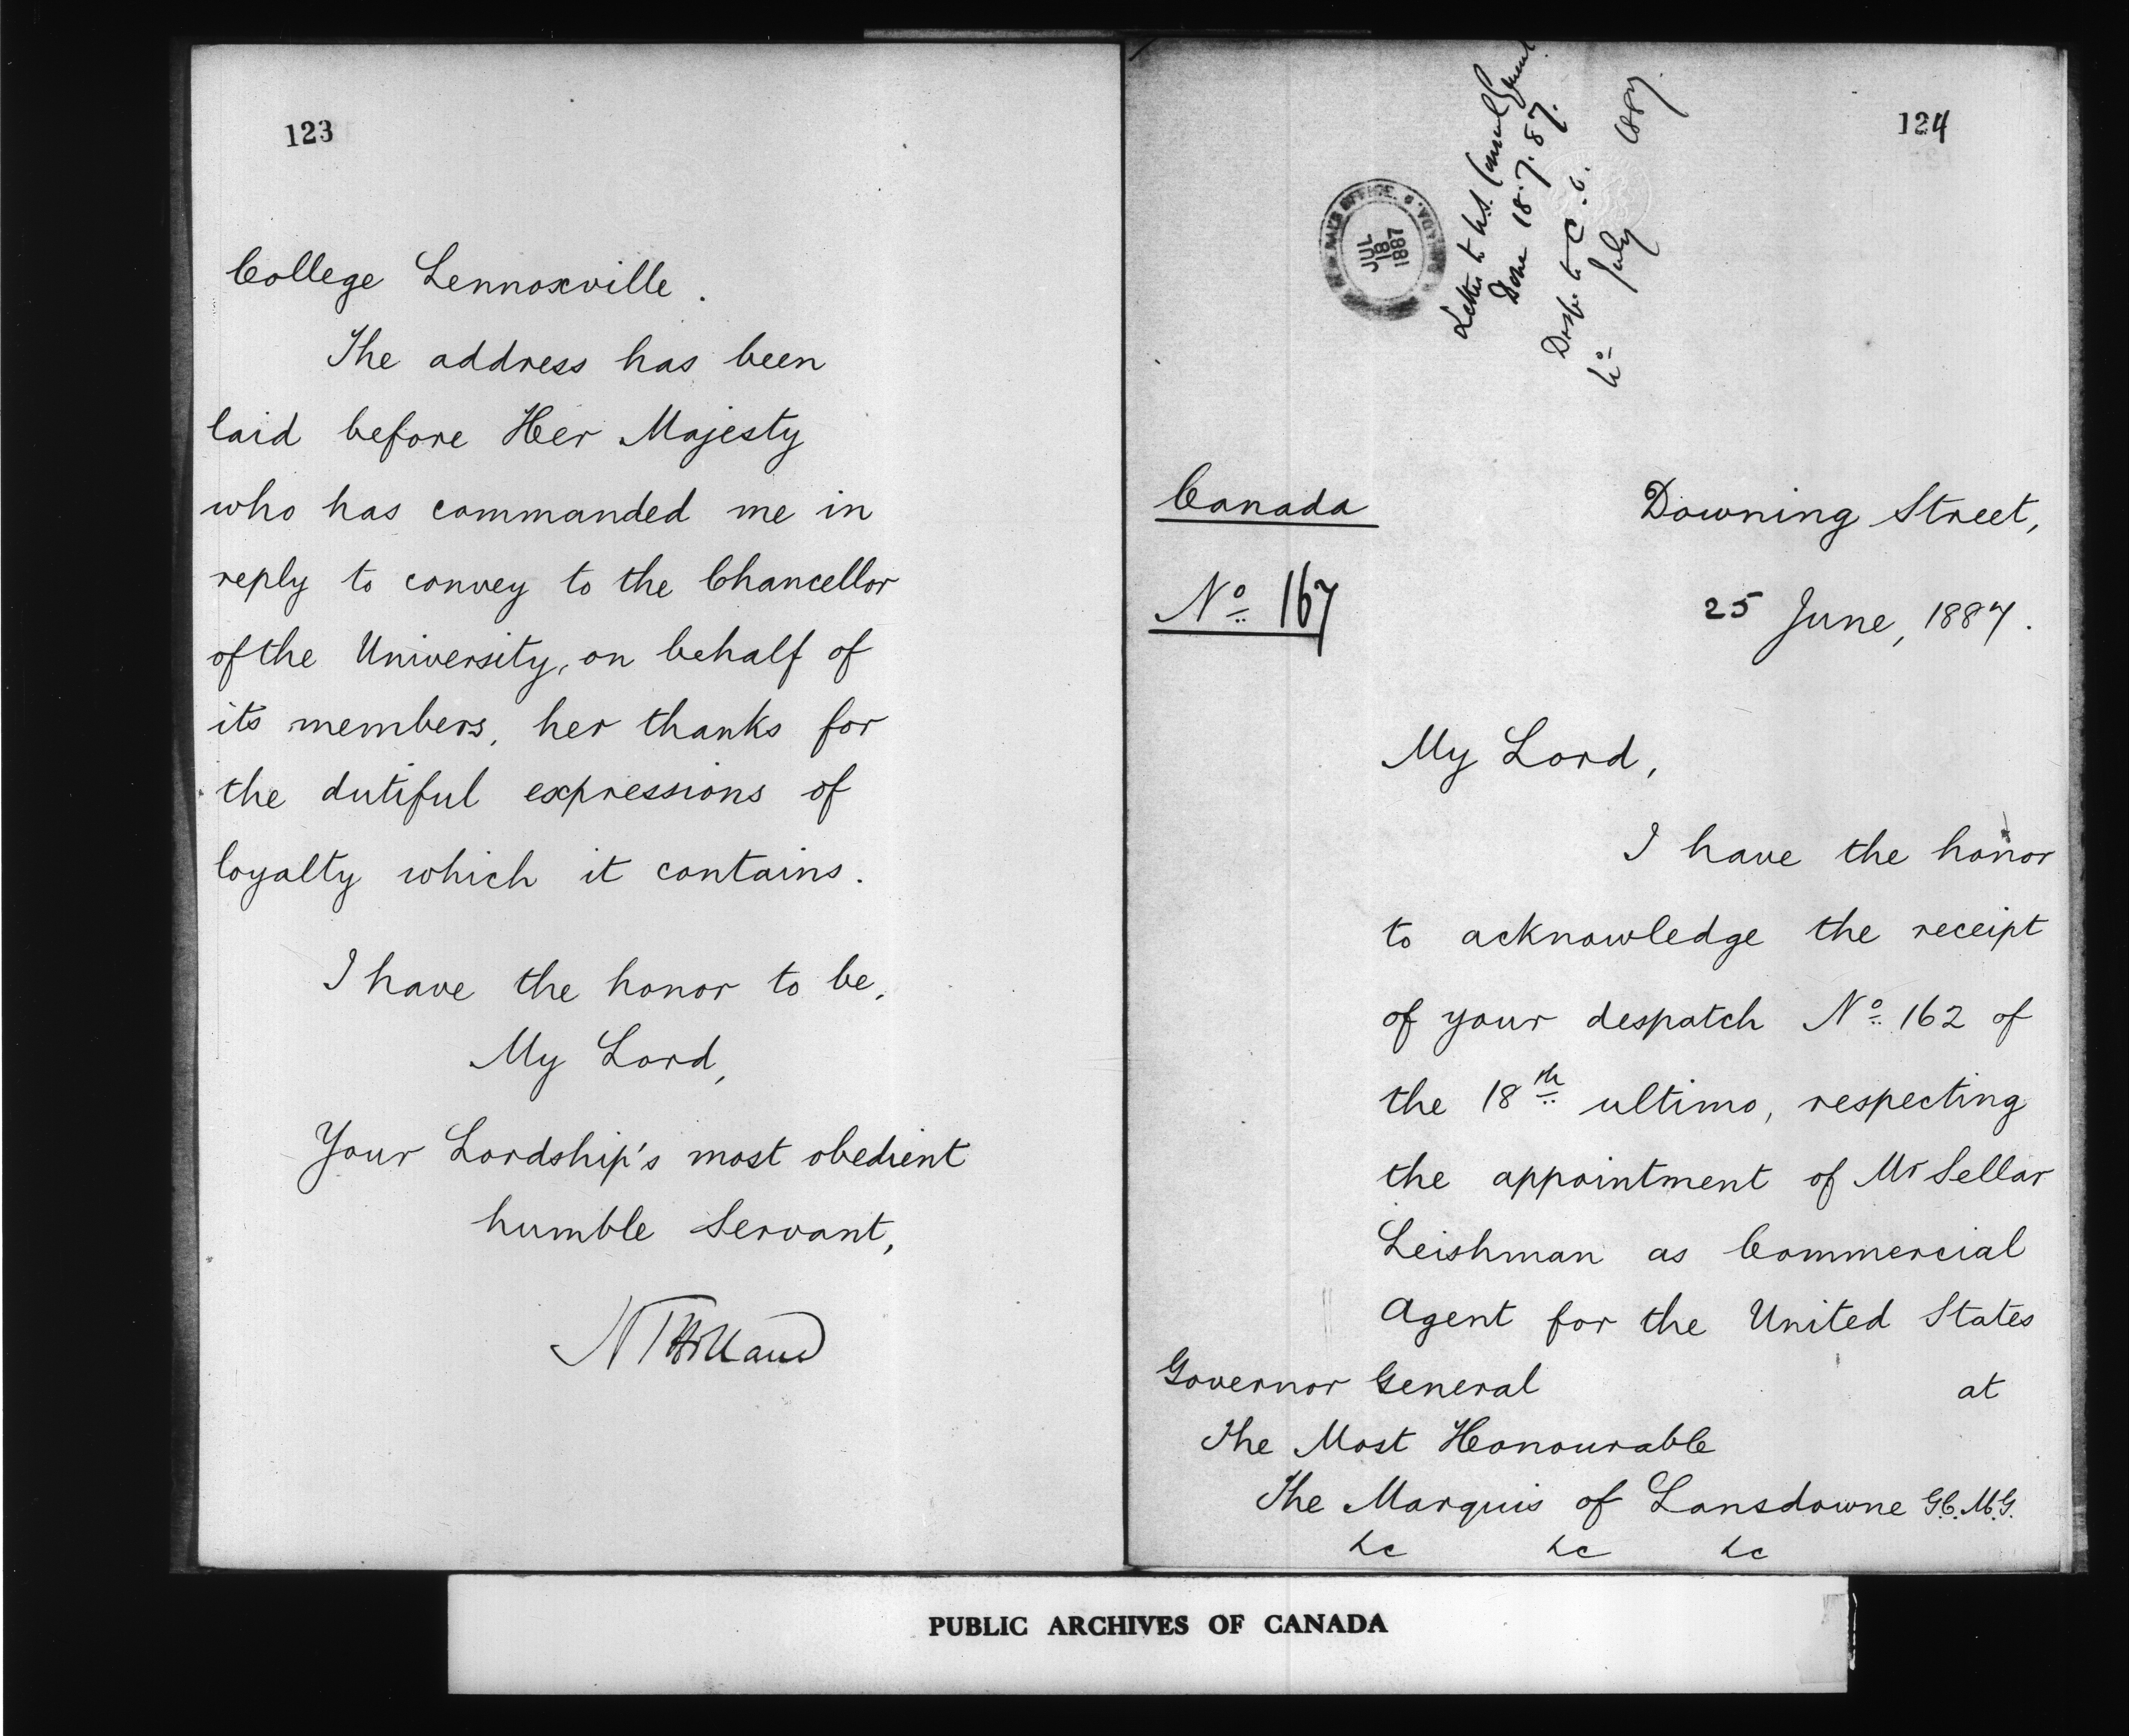 123
College Lennoxville.
The address has been
laid before Her Majesty
who has commanded me in
reply to convey to the Chancellor
of the University, on behalf of
its members, her thanks for
the dutiful expressions of
loyalty which it contains.
I have the honor to be,
My Lord,
Your Lordship's most obedient
humble Servant,
124
JUL
18
1887
Letter to U.S. Consul General
Done 18.7.87.
Desp. to C.O.
No July 1887.
Canada
Downing Street,
No 167
25 June, 1887.
My Lord,
I have the honor
to acknowledge the receipt
of your despatch No 162 of
the 18th ultimo, respecting
the appointment of Mr Sellar
Leishman as Commercial
Agent for the United States
at
Governor General
The Most Honourable
The Marquis of Lansdowne G.C.M.G.
&c &c &c
PUBLIC ARCHIVES OF CANADA